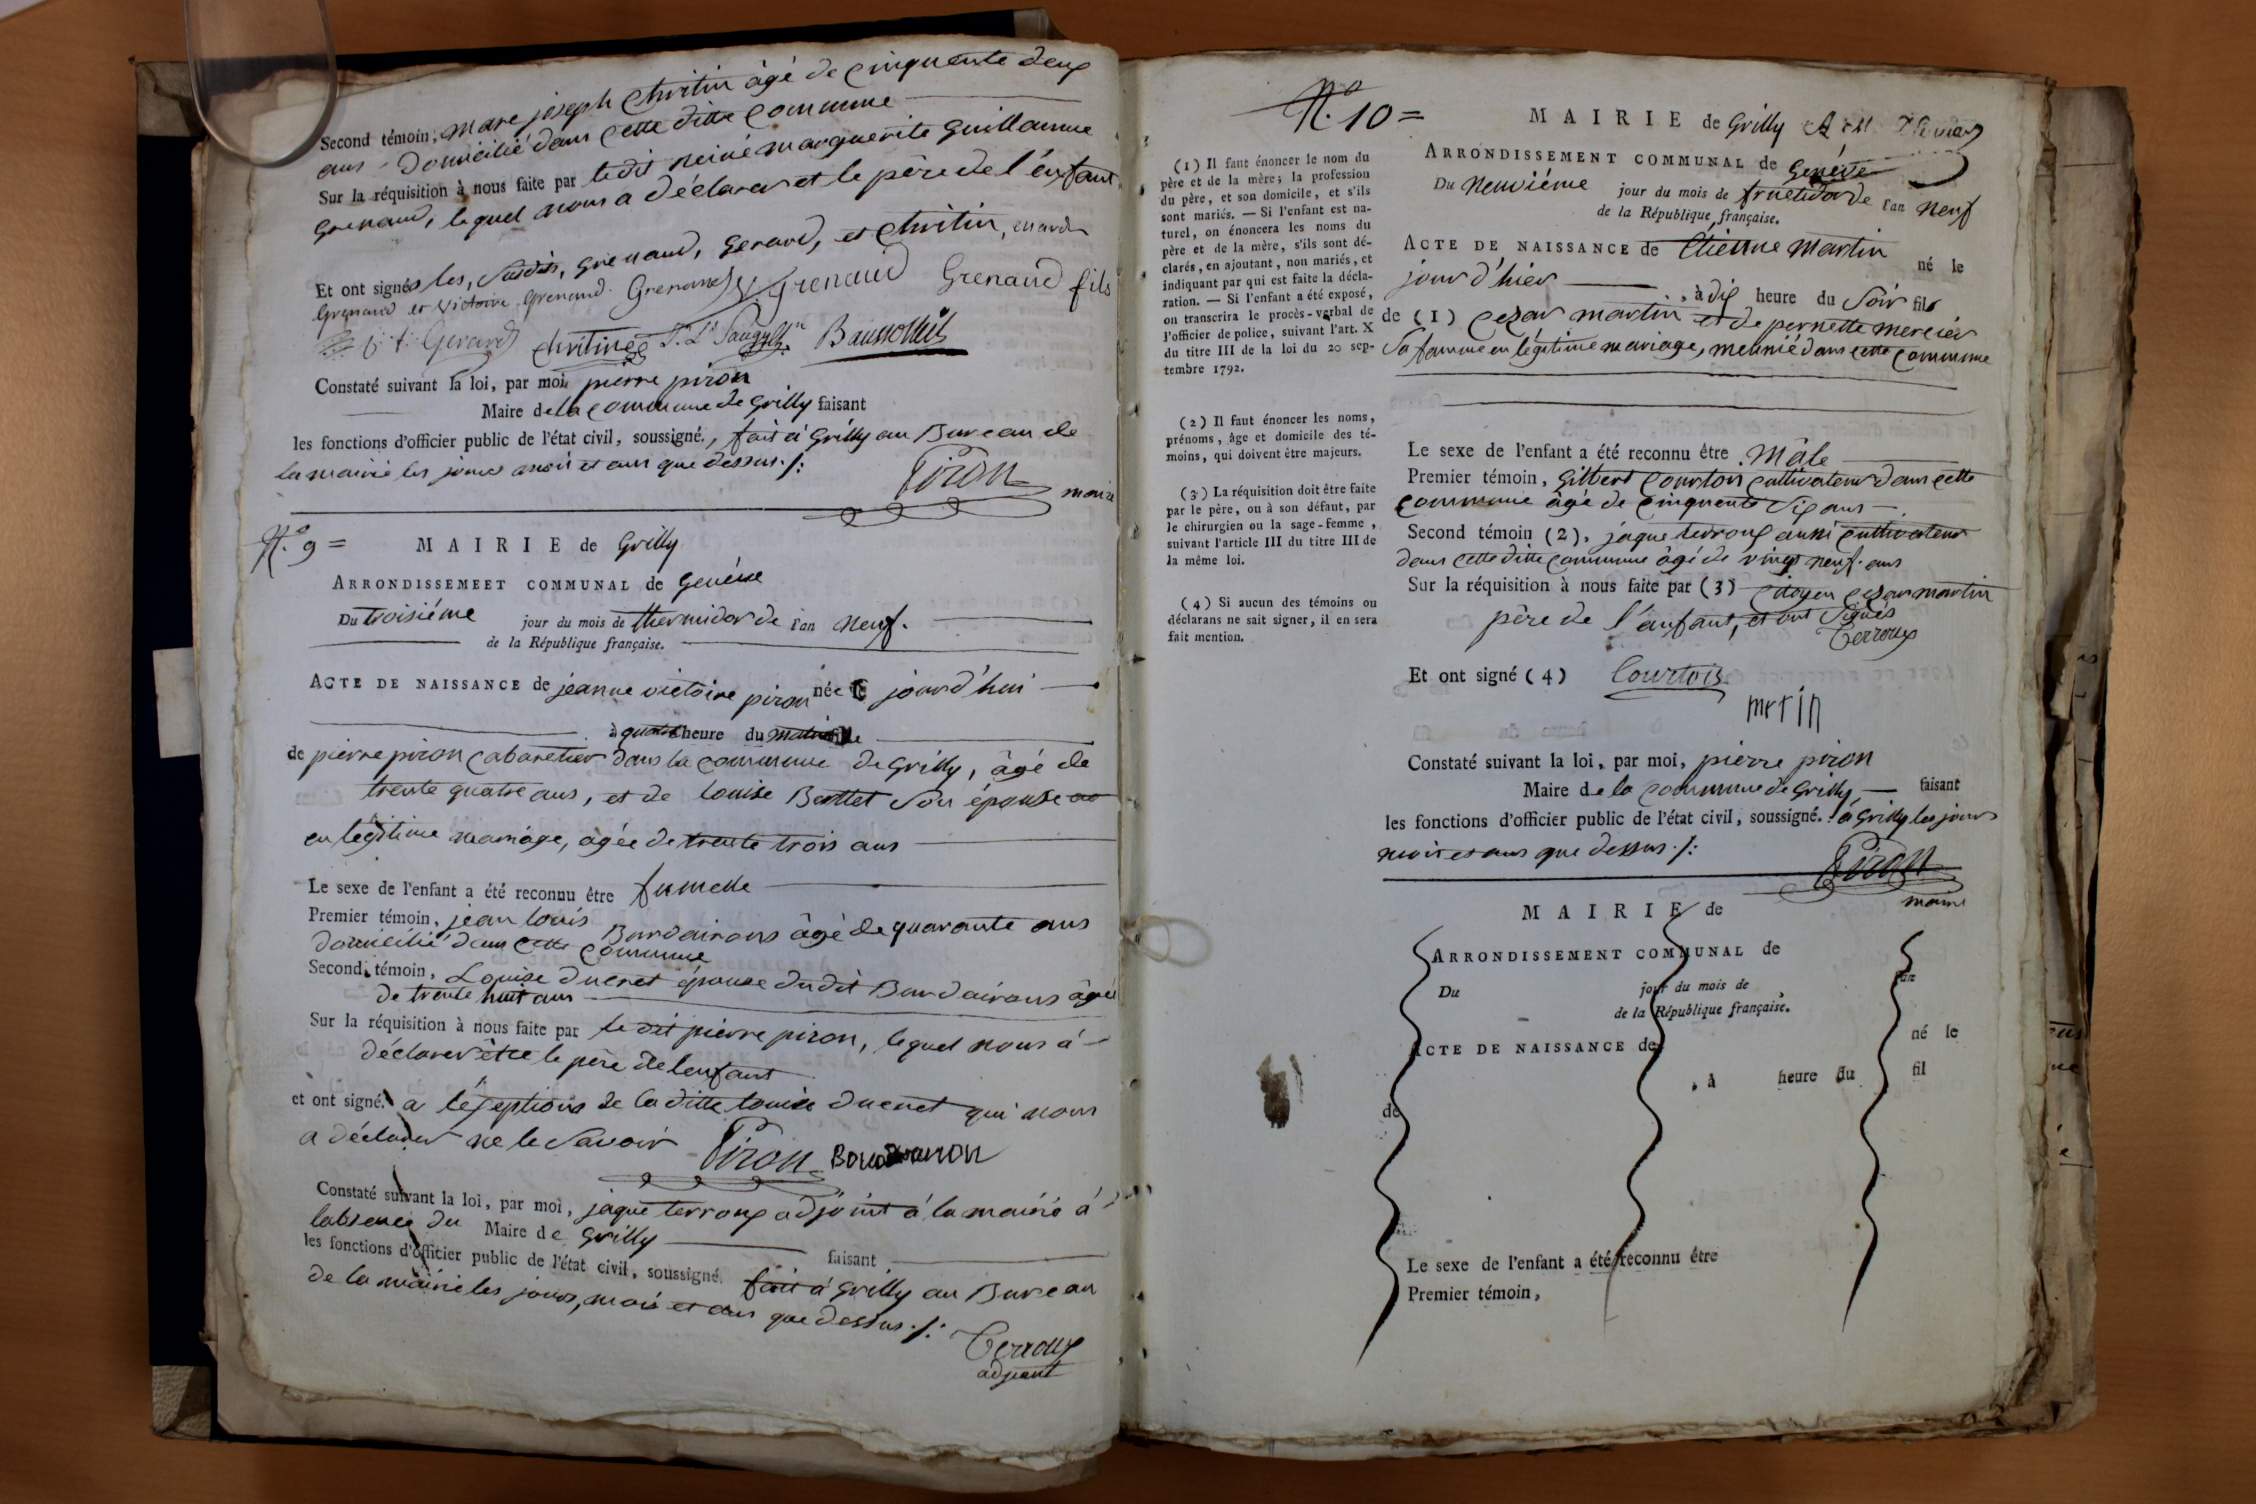 Second témoin, marc joseph chritin âgé de cinquente deux
ans domicilié dans cette ditte commune
Sur la réquisition à nous faite par ledit reiné marguerite guillaume
grenaud, lequel nous a déclarer et le père de l'enfant
Et ont signé les, susdits, grenaud, gerard, et chritin,
grenaud et victoire grenaud. Grenaud V. Grenaud Grenaud fils
Gerard chritin
Constaté suivant la loi, par moi pierre piron
Maire de la commune de Grilly faisant
les fonctions d'officier public de l'état civil, soussigné, fait à Grilly au Bureau de
la mairie les jours mois et ans que dessus ./:
Piron maire
N.o 9 = MAIRIE de Grilly
ARRONDISSEMEET COMMUNAL de Genéve
Du troisiéme jour du mois de thermidor de l'an neuf.
de la République française.
ACTE DE NAISSANCE de jeanne victoire piron née le jourd'hui
à quatre heure du matin fille
de pierre piron cabaretier dans la commune de Grilly, âgé de
trente quatre ans, et de louise Bertet son épouse
en légitime mariage, agée de trente trois ans
Le sexe de l'enfant a été reconnu être fumelle
Premier témoin, jean louis Bardairons âgé de quarante ans
domicilié dans cette commune
Second témoin, Louise ducret épouse dudit Bardairons âgé
de trente huit ans
Sur la réquisition à nous faite par le dit pierre piron, lequel nous à
déclarer être le père de lenfant
et ont signé. a léxeptions de la ditte louise ducret qui nous
a déclarer ne le savoir Piron
Constaté suivant la loi, par moi, jaque terroux adjoint à la mairie à
labsence du Maire de Grilly faisant
les fonctions d'officier public de l'état civil, soussigné. fait à Grilly au Bureau
de la mairie les jours, mois et ans que dessus ./:
Terroux
adjoint
N.o 10 =
(1) Il faut énoncer le nom du
père et de la mère; la profession
du père, et son domicile, et s'ils
sont mariés. — Si l'enfant est na-
turel, on énoncera les noms du
père et de la mère, s'ils sont dé-
clarés, en ajoutant, non mariés, et
indiquant par qui est faite la décla-
ration. — Si l'enfant a été exposé,
on transcrira le procès-verbal de
l'officier de police, suivant l'art. X
du titre III de la loi du 20 sep-
tembre 1792.
(2) Il faut énoncer les noms,
prénoms, âge et domicile des té-
moins, qui doivent être majeurs.
(3) La réquisition doit être faite
par le père, ou à son défaut, par
le chirurgien ou la sage-femme,
suivant l'article III du titre III de
la même loi.
(4) Si aucun des témoins ou
déclarans ne sait signer, il en sera
fait mention.
MAIRIE de Grilly
ARRONDISSEMENT COMMUNAL de Genève
Du Neuviéme jour du mois de fructidor de l'an neuf
de la République française.
ACTE DE NAISSANCE de Etienne martin né le
jour d'hier , à dix heure du Soir fils
de (1) cezar martin et de pernette mercier
sa famme en légitime mariage, meunié dans cette commune
Le sexe de l'enfant a été reconnu être mâle
Premier témoin, Gilbert Courtois cultivateur dans cette
commune âgé de cinquente six ans
Second témoin (2), jaque terroux aussi cultivateur
dans cette ditte commune âgé de vingt neuf ans
Sur la réquisition à nous faite par (3) citoyen cezar martin
père de l'anfant, et ont signés
Terroux
Et ont signé (4) Courtois
mrtin
Constaté suivant la loi, par moi, pierre piron
Maire de la commune de Grilly faisant
les fonctions d'officier public de l'état civil, soussigné. à Grilly les jours
mois et ans que dessus ./:
Piron
maire
MAIRIE de
ARRONDISSEMENT COMMUNAL de
Du jour du mois de l'an
de la République française.
ACTE DE NAISSANCE de né le
, à heure du fil
de
Le sexe de l'enfant a été reconnu être
Premier témoin,